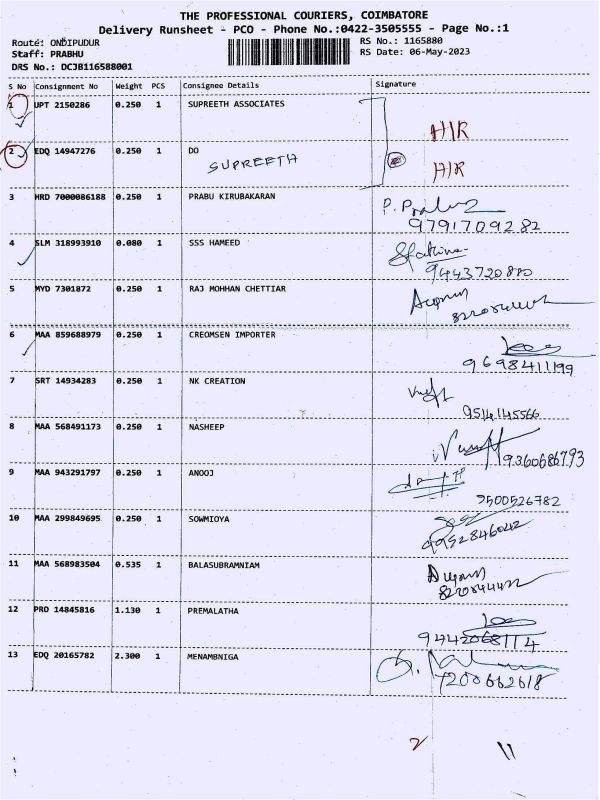 THE PROFESSIONAL COURIERS, COIMBATORE
Delivery Runsheet - PCO - Phone No.:0422-3505555 - Page No.:1
Route: ONDIPUDUR
RS No.: 1165880
Staff: PRABHU
RS Date: 06-May-2023
DRS No.: DCJB116588001
S No Consignment No Weight PCS Consignee Details Signature
1 UPT 2150286 0.250 1 SUPREETH ASSOCIATES
H/R
2 EDQ 14947276 0.250 1 DO
SUPREETH
H/R
3 HRD 7000086188 0.250 1 PRABU KIRUBAKARAN
9791709282
4 SLM 318993910 0.080 1 SSS HAMEED
9443720880
5 MYD 7301872 0.250 1 RAJ MOHHAN CHETTIAR
6 MAA 859688979 0.250 1 CREOMSEN IMPORTER
9698411199
7 SRT 14934283 0.250 1 NK CREATION
9514145566
8 MAA 568491173 0.250 1 NASHEEP
9360686793
9 MAA 943291797 0.250 1 ANOOJ
9500526782
10 MAA 299849695 0.250 1 SOWMIOYA
9952846042
11 MAA 568983504 0.535 1 BALASUBRAMNIAM
12 PRD 14845816 1.130 1 PREMALATHA
9442068114
13 EDQ 20165782 2.300 1 MENAMBNIGA
7200662618
2 11